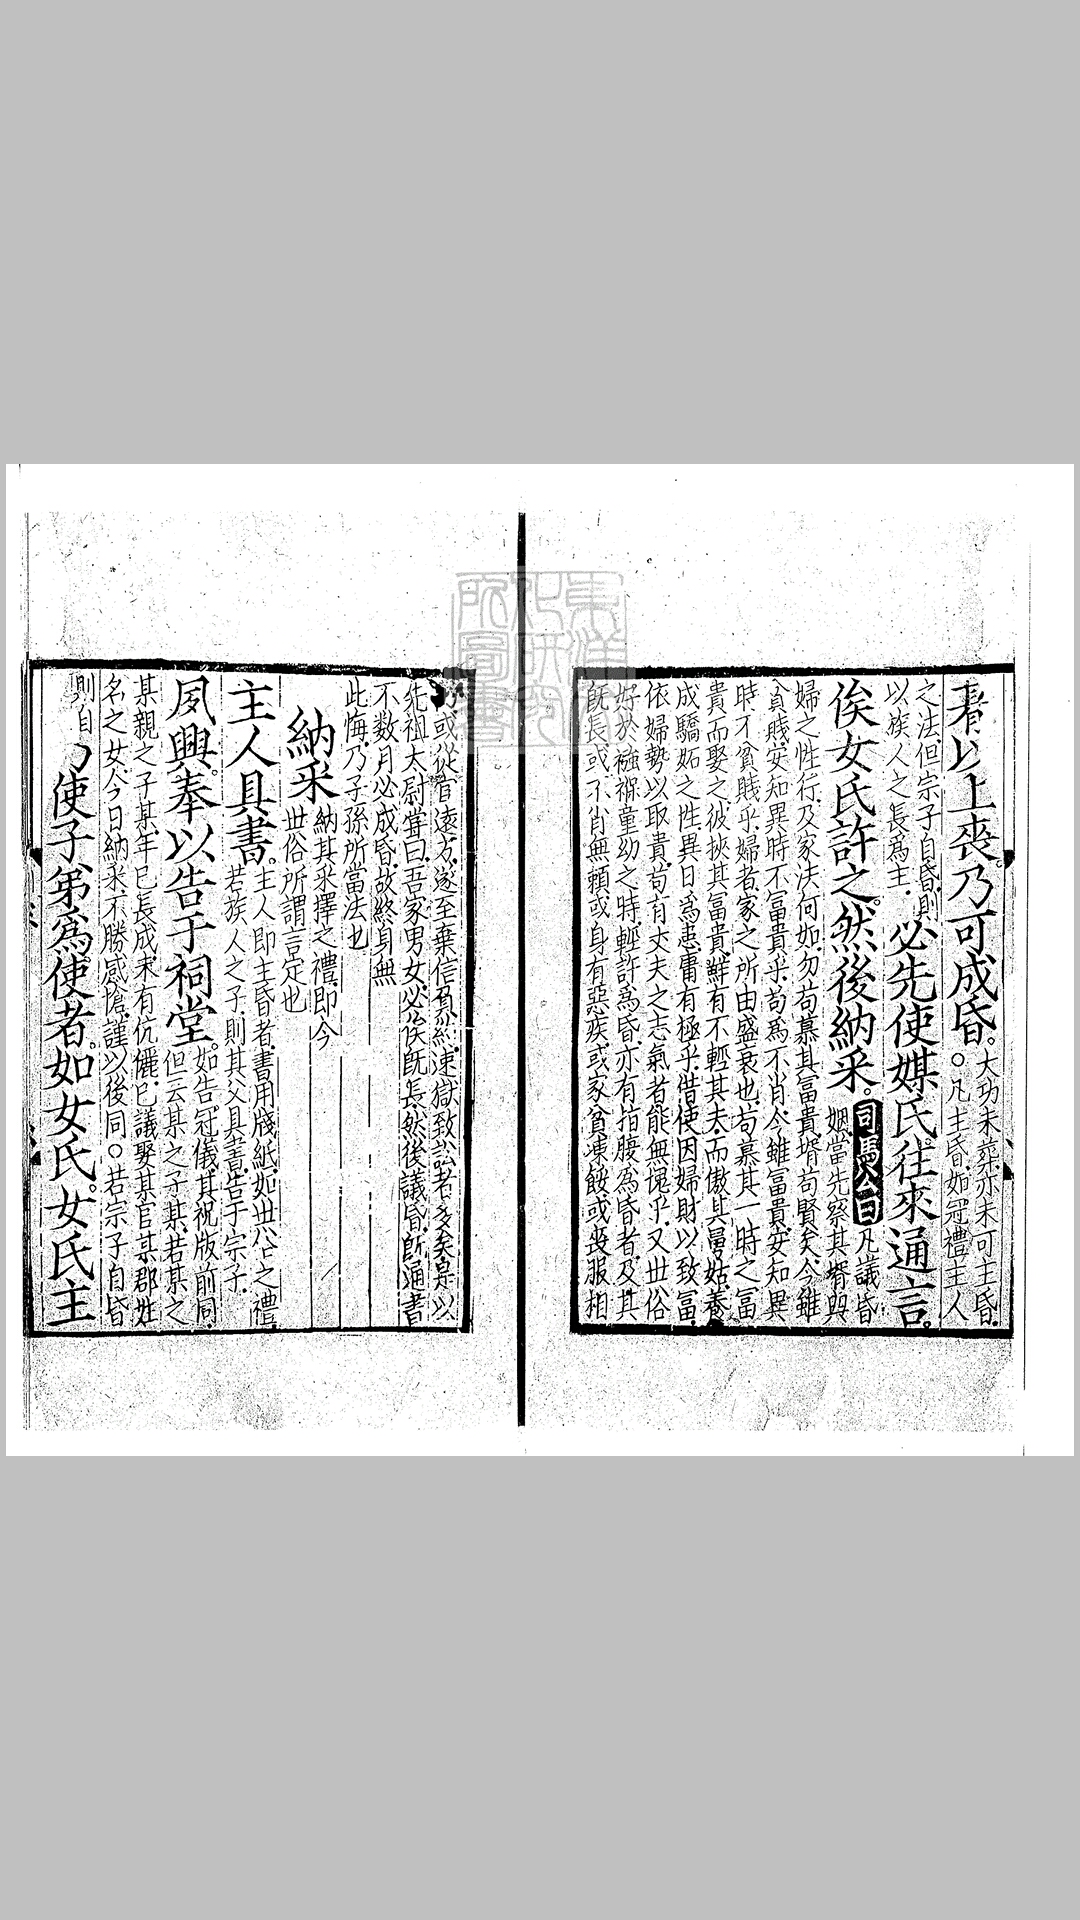 朞以上喪。乃可成昏。大功未葬亦未可主昏。
○凡主昏如冠禮主人
之法但宗子自昏則
以族人之長爲主必先使媒氏。往來通言。
俟女氏許之。然後納采。司馬公曰凡議昏
姻當先察其壻與
婦之性行及家法何如勿苟慕其冨貴壻苟賢矣今雖
貧賤安知異時不冨貴乎苟爲不肖今雖冨貴安知異
時不貧賤乎婦者家之所由盛衰也苟慕其一時之冨
貴而娶之彼挾其冨貴鮮有不輕其夫而傲其舅姑養
成驕妬之性異日爲患庸有極乎借使因婦財以致冨
依婦勢以取貴苟有丈夫之志氣者能無愧乎又世俗
好於襁褓童幼之時輕許爲昏亦有指腹爲昏者及其
旣長或不肖無頼或身有惡疾或家貧凍餒或喪服相
仍或從宦遠方遂至棄信負約速獄致訟者多矣是以
先祖太尉嘗曰吾家男女必俟旣長然後議昏旣通書
不数月必成昏故終身無
此悔乃子孫所當法也
納采納其采擇之禮即今
世俗所謂言定也
主人具書。主人即主昏者書用牋紙如世俗之禮
若族人之子則其父具書告于宗子
夙興。奉以告于祠堂。如告冠儀其祝版前同
但云某之子某若某之
某親之子某年已長成未有伉儷已議娶某官某郡姓
名之女今日納采不勝感愴謹以後同○若宗子自昏
則自
使子弟爲使者。如女氏。女氏主